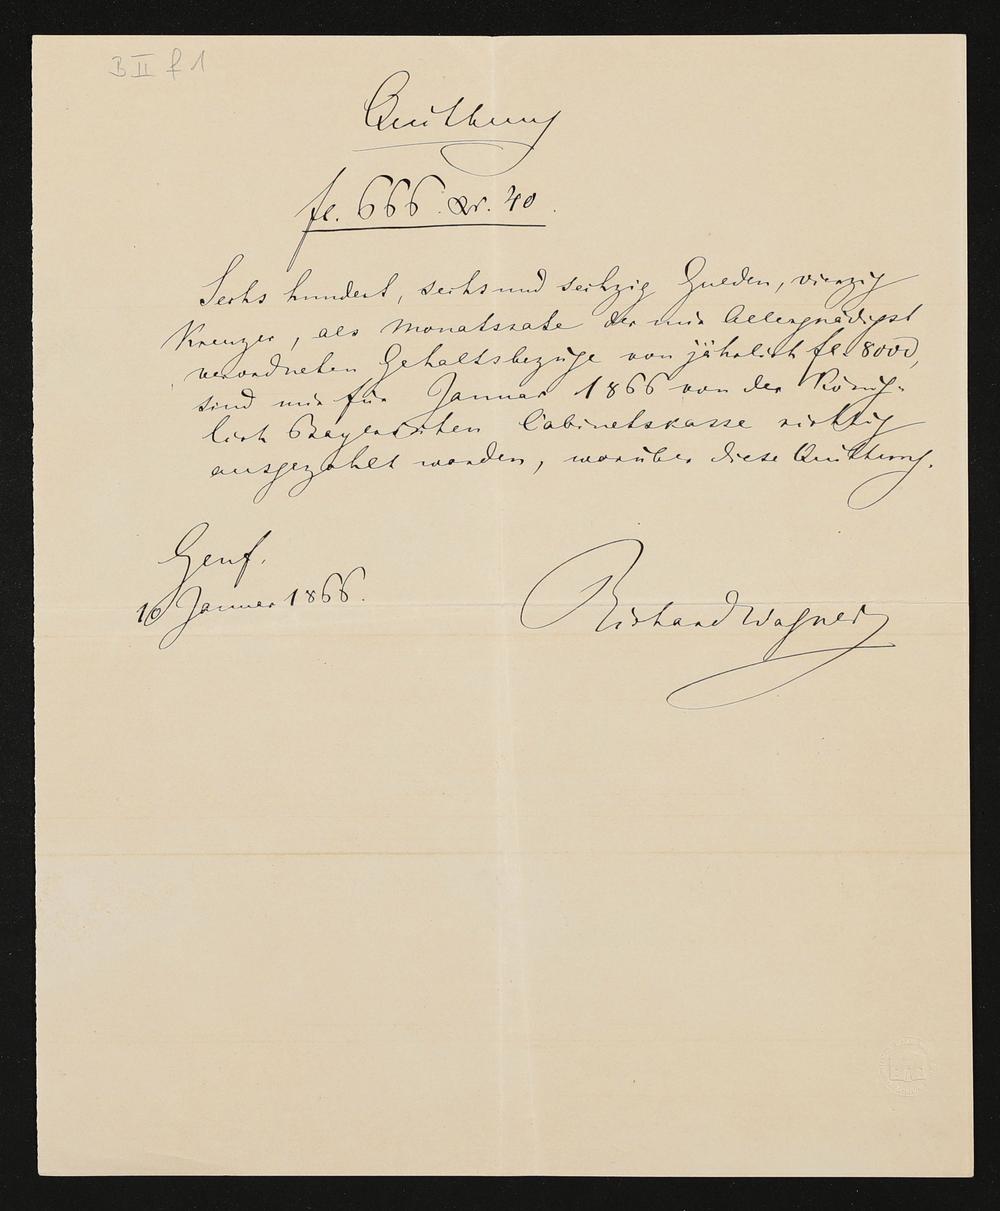 B II f 1
Quittung
fl. 666. Xr. 40.
Sechs hundert, sechsund sechzig Gulden, vierzig
Kreuzer, als Monatsrate der mir Allergnädigst
verordneten Gehaltsbezüge von jährlich fl. 8000,
sind mir für Januar 1866 von der König-
lich Bayerischen Cabinetskasse richtig
ausgezahlt worden, worüber diese Quittung.
Genf.
16 Januar 1866.
Richard Wagner